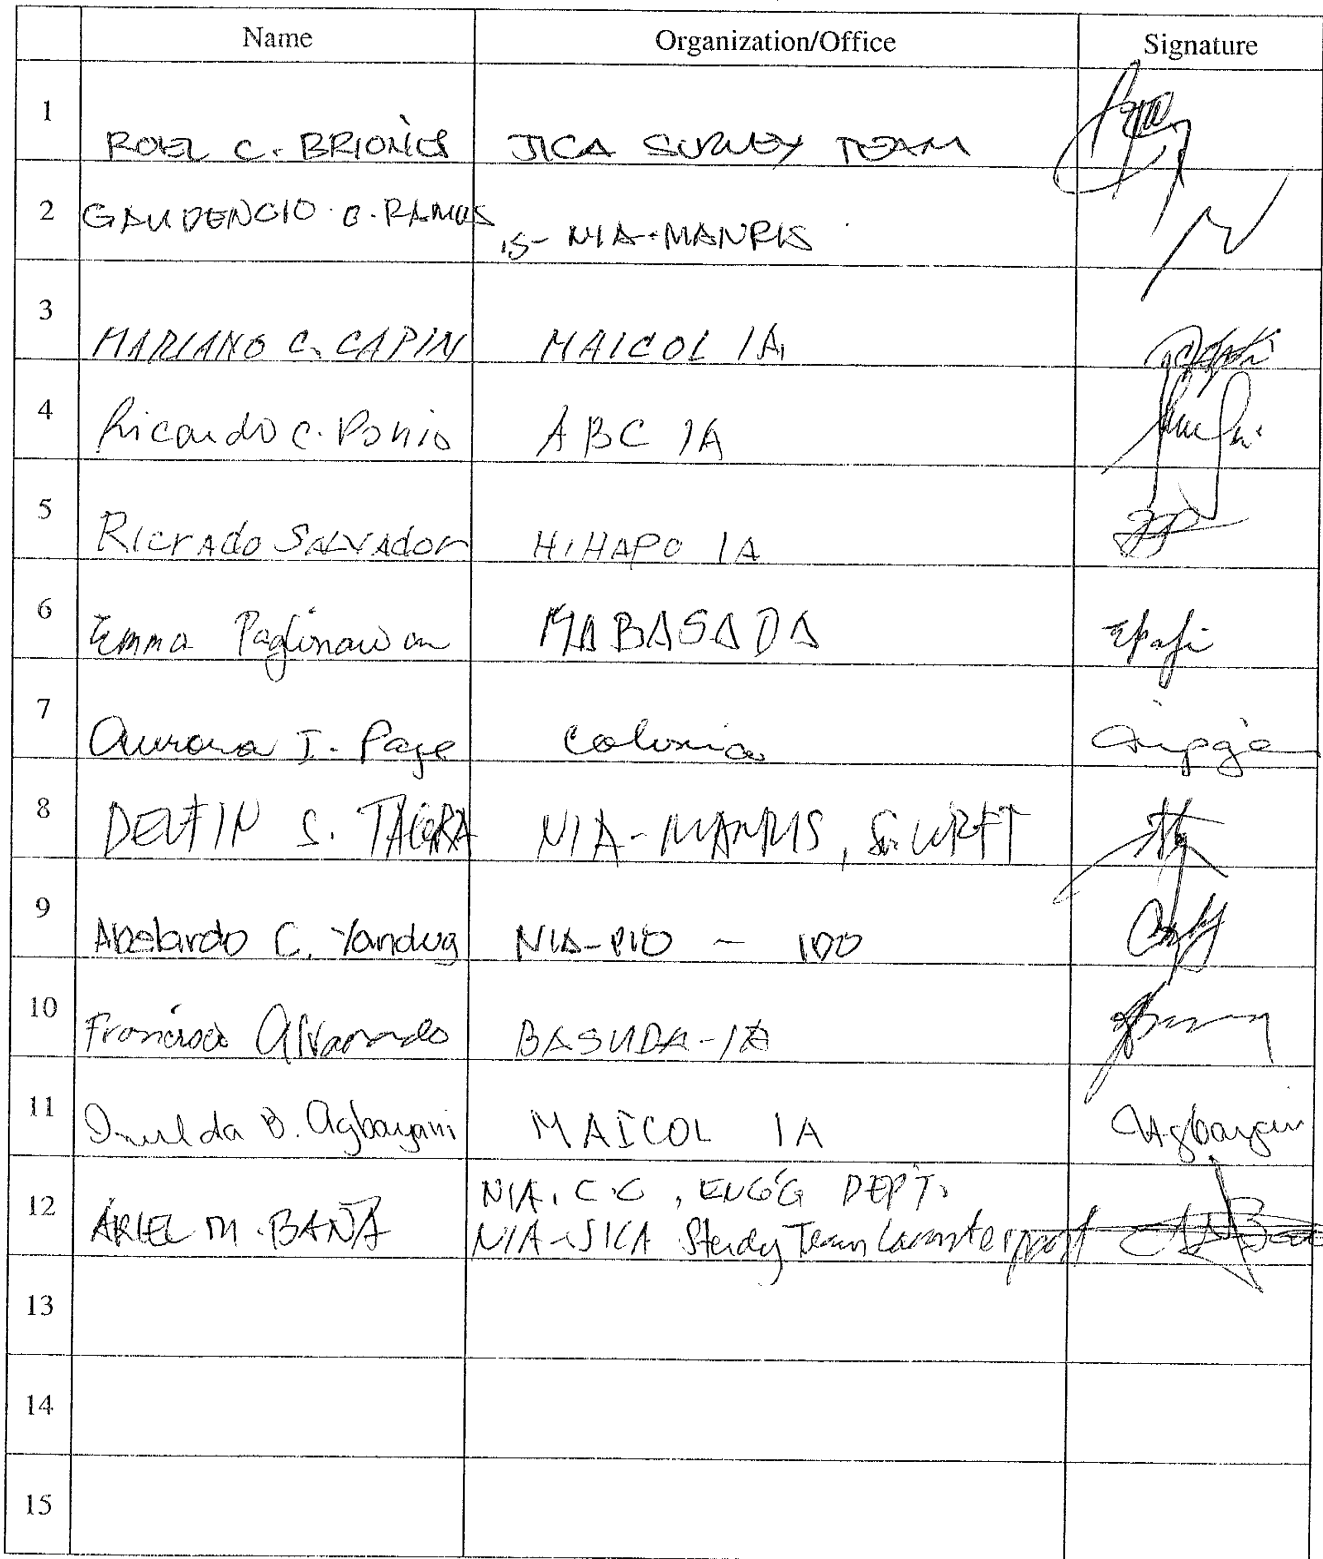 Name Organization/Office Signature
1 ROEL C. BRIONES JICA SURVEY TEAM
2 GAUDENCIO C. RAMOS IS- NIA-MANRIS
3 MARIANO C. CAPIN MAICOL IA
4 Ricardo C. Ponio ABC IA
5 RICrADO SALVADOR HIHAPO IA
6 Emma Paglinawan MABASADA
7 Aurora I. Page Colonia
8 DELFIN S. NIA-MANRIS, Sr. WRFT
9 Abelardo C. Yandug NIA-PIO - IDO
10 Francisco Alvarado BASUDA-IA
11 Imelda B. Agbayani MAICOL IA Agbayani
12 ARIEL M. BAÑA NIA. C.O, ENG'G DEPT.
NIA-JICA Study Team Counterpart
13
14
15